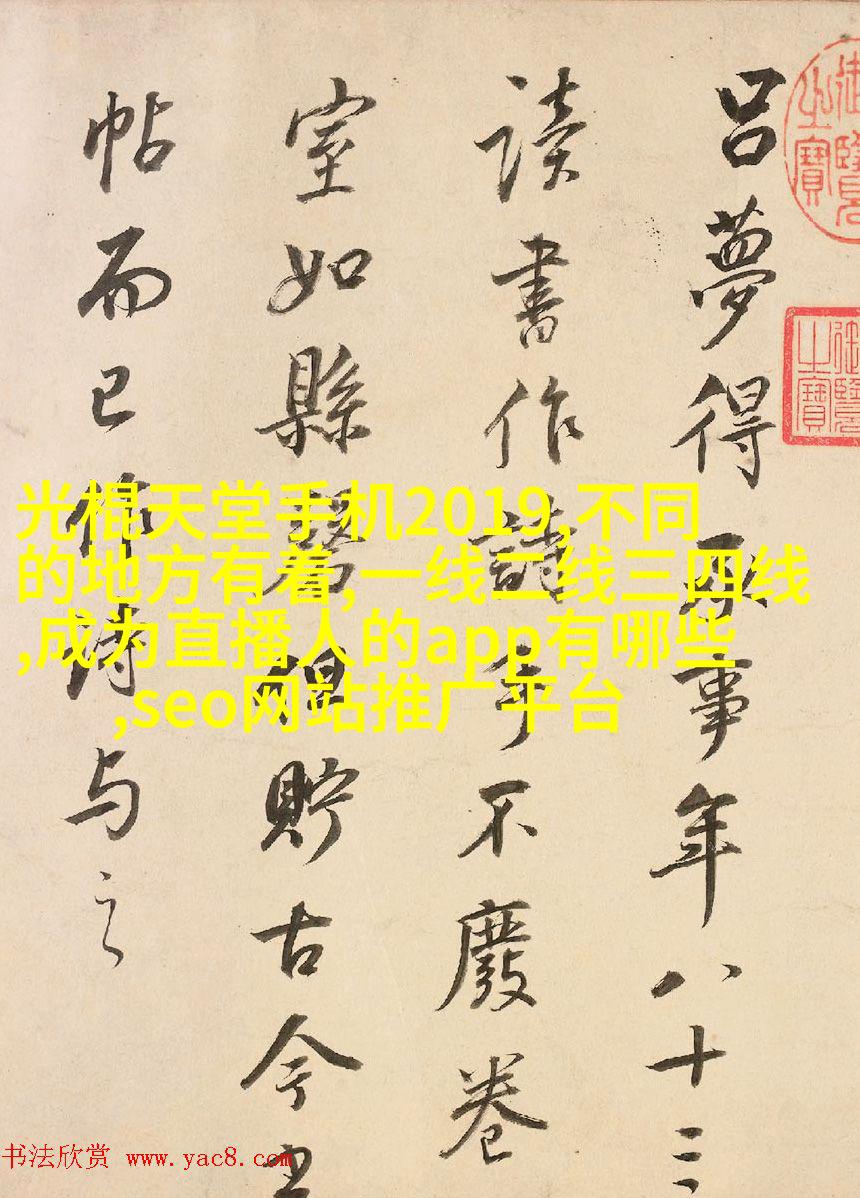 吕夢得承事年八十三
讀書作詩手不廢卷
室如縣磬但貯古今書
帖而已作詩与之
御覽之寶
御覽之寶
光棍天堂手机2019,不同
的地方有着,一线二线三四线
,成为直播人的app有哪些
,seo网站推广平台
书法欣赏 www.yac8.com